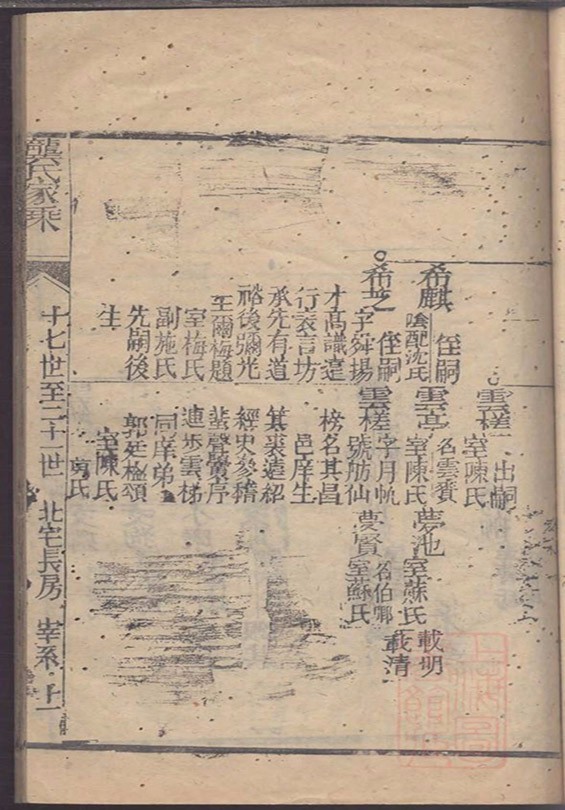 龔氏家乘
十七世至二十一世 北宅長房 宰系 十一
雲槎 出嗣
室陳氏
希麒 侄嗣
配沈氏
雲亭 名雲賚
室陳氏
夢池 室蘇氏
載明
希芝 侄嗣
字舜揚
才高識遠
行表言坊
承先有道
裕後彌光
王爾梅題
室梅氏
副施氏
先嗣後
生
雲槎 字月帆
號舫仙
榜名其昌
邑庠生
箕裘遠紹
經史參稽
蜚聲黌序
連步雲梯
同庠弟
郭廷檢頌
室陳氏
夢賢 名伯卿
室蘇氏
載清